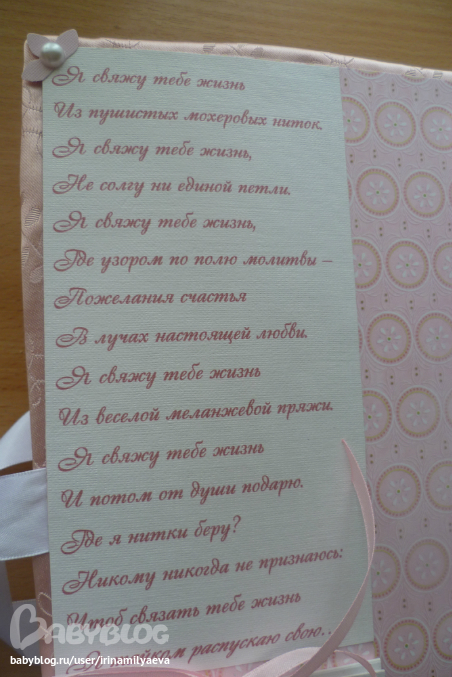 Я свяжу тебе жизнь
Из пушистых мохеровых ниток.
Я свяжу тебе жизнь,
Не солгу ни единой петли.
Я свяжу тебе жизнь,
Где узором по полю молитвы –
Пожелания счастья
В лучах настоящей любви.
Я свяжу тебе жизнь
Из веселой меланжевой пряжи.
Я свяжу тебе жизнь
И потом от души подарю.
Где я нитки беру?
Никому никогда не признаюсь:
Чтоб связать тебе жизнь
распускаю свою...
BABYBLOG
babyblog.ru/user/irinamilyaeva